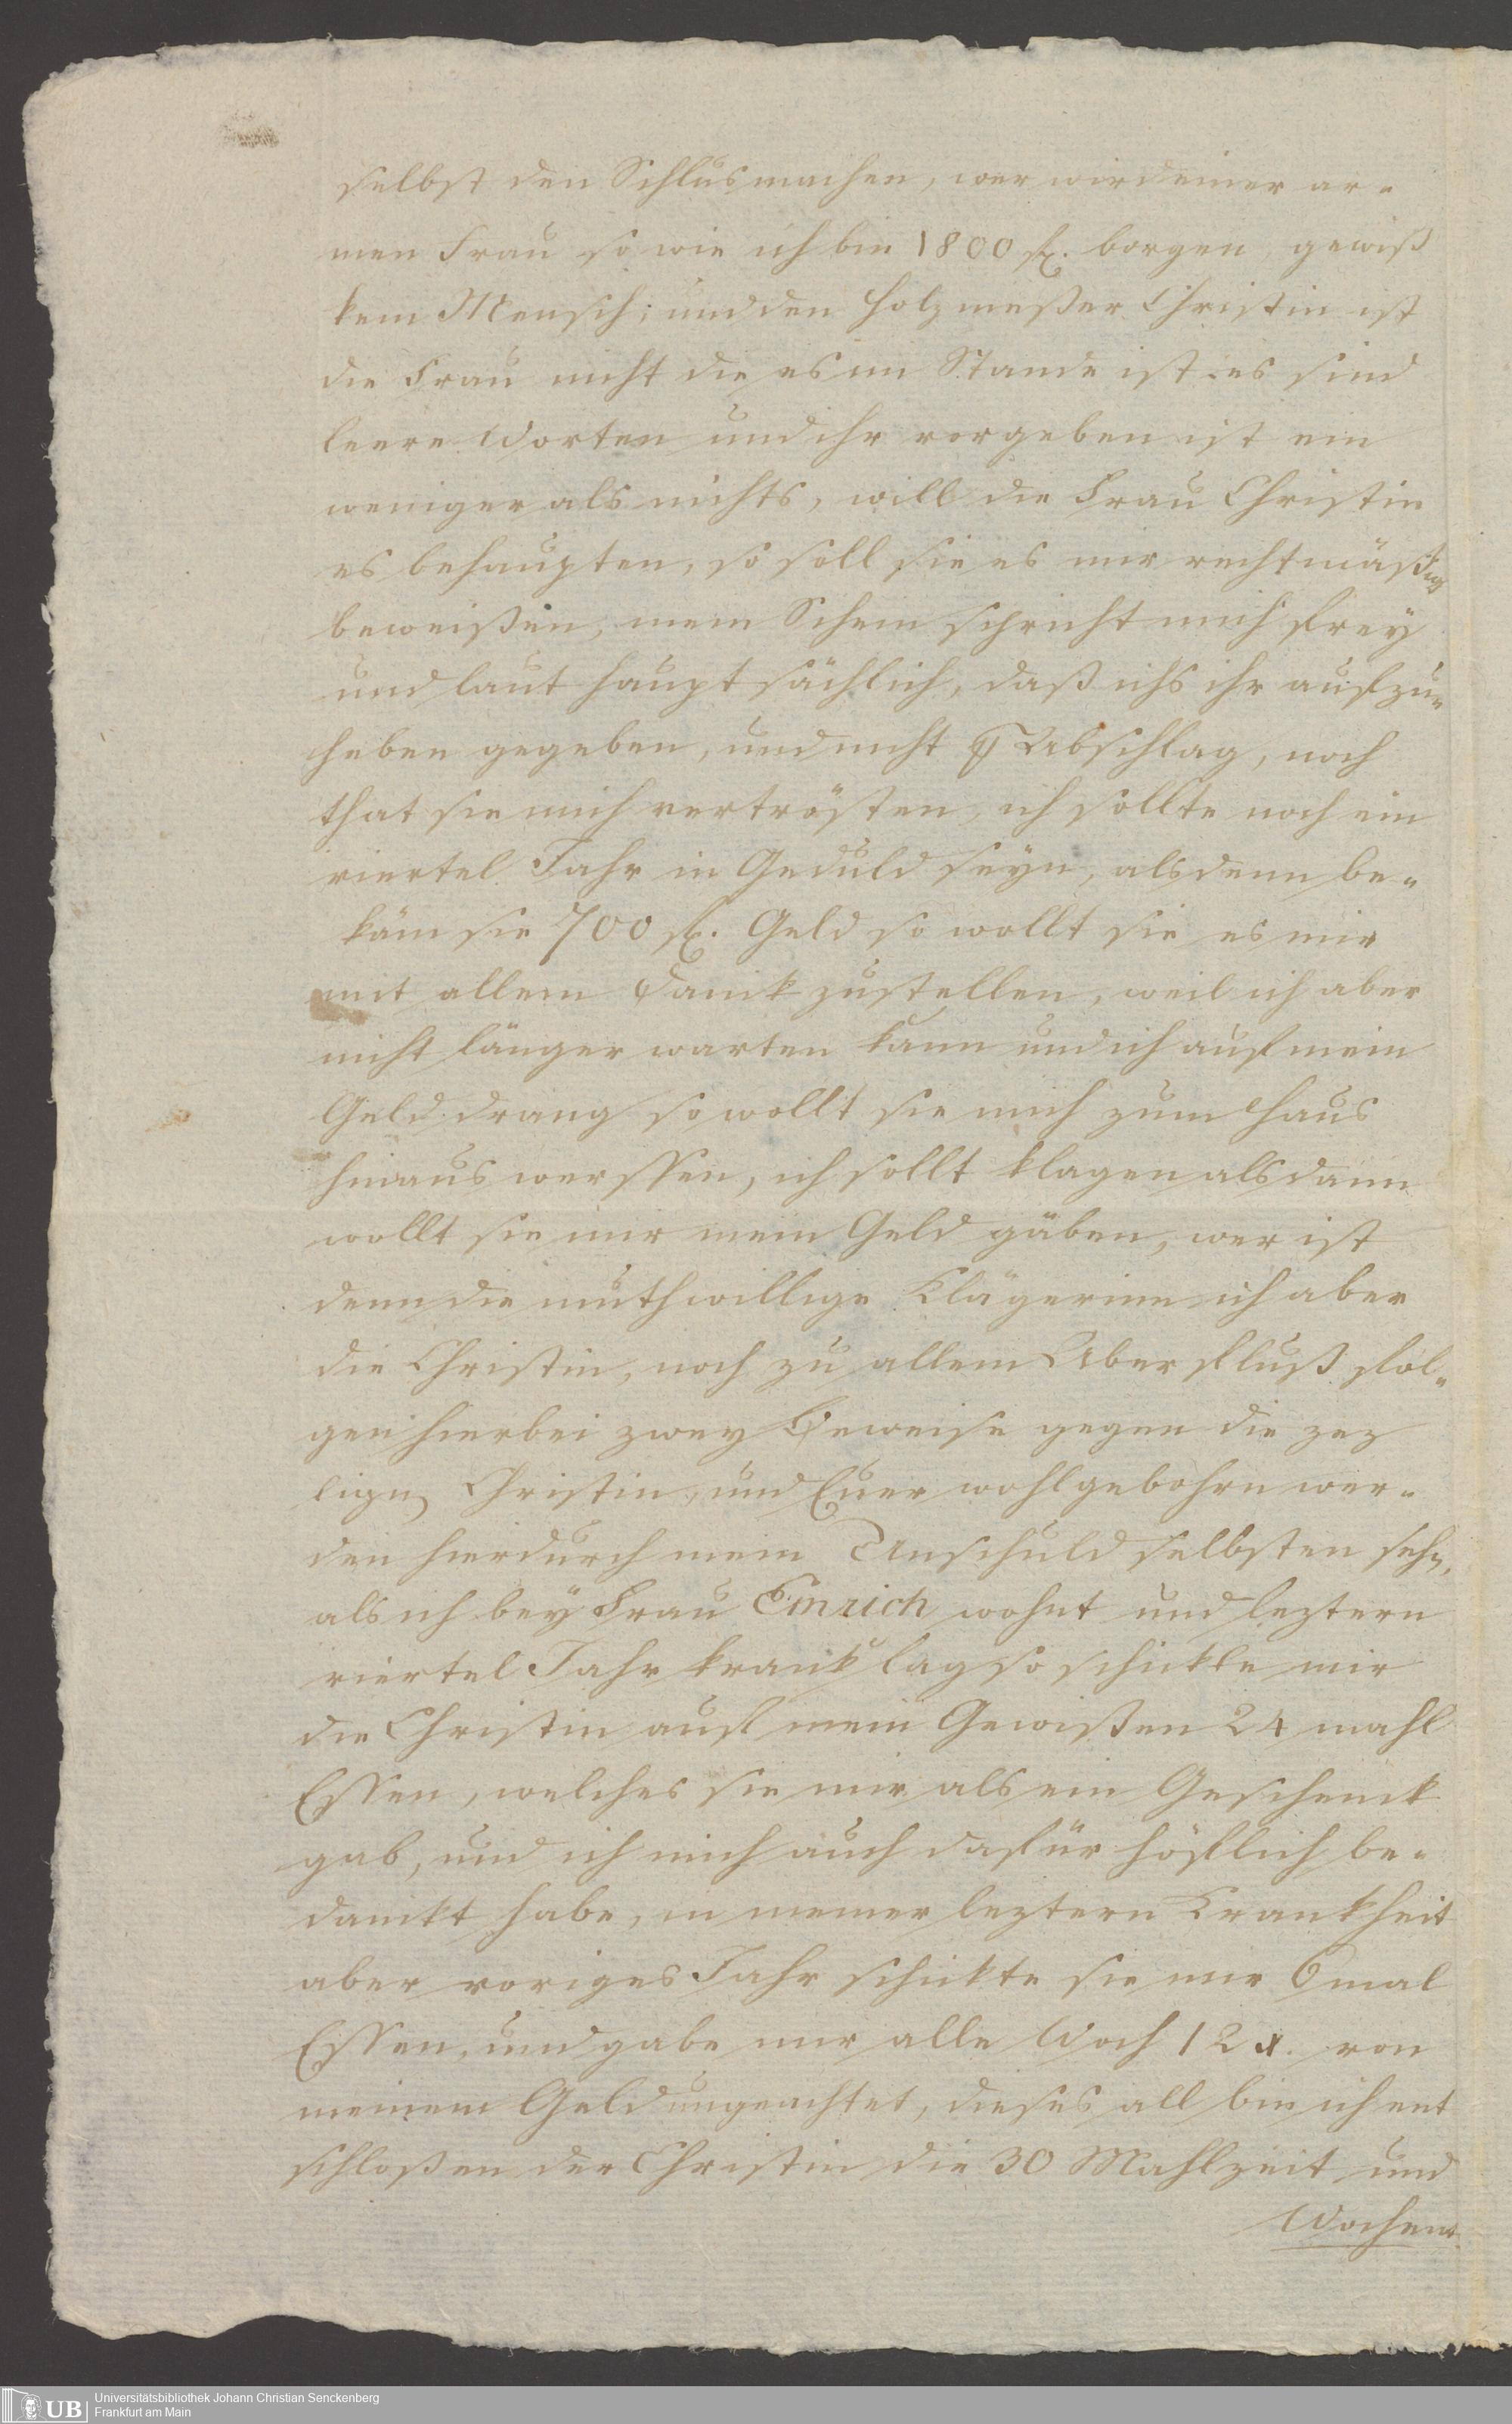 selbst den Schlus machen, wer wird einer ar-
men Frau so wie ich bin 1800 fl. borgen, gewiß
kein Mensch; und den Holzmeßer Christin ist
die Frau nicht die es im Stande ist. es sind
leere Worten und ihr vorgeben ist ein
weniger als nichts, will die Frau Christin
es behaupten, so soll sie es mir rechtmäßig
beweißen, mein Schein spricht mich frey
und laut hauptsächlich, daß ichs ihr aufzu-
heben gegeben, und nicht Abschlag, noch
that sie mich vertrösten, ich sollte noch ein
viertel Jahr in Geduld seyn, alsdenn be-
käm sie 700 fl. Geld so wollt sie es mir
mit allem Danck zustellen, weil ich aber
nicht länger warten kann und ich auf mein
Geld drang so wollt sie mich zum Haus
hinaus werffen, ich sollt klagen alsdann
wollt sie mir mein Geld gäben, wer ist
denn die muthwillige Klägerinn ich aber
die Christin, noch zu allem Uberfluß fol-
gen hierbei zwey Beweise gegen die
Christin, und Euer wohlgebohrn wer-
den hierdurch mein Unschuld selbsten sehn,
als ich bey Frau Emrich wohnt und leztern
viertel Jahr krank lag so schickte mir
die Christin auf mein Gewißen 24 mahl
Essen, welches sie mir als ein Geschenck
gab, und ich mich auch dafür höflich be-
danckt habe, in meiner leztern Krankheit
aber voriges Jahr schickte sie mir 6 mal
Essen, und gabe mir alle Woch 12 x. von
meinem Geld ungeachtet, dieses all bin ich ent
schloßen der Christin die 30 Mahlzeit und
Wochent
Universitätsbibliothek Johann Christian Senckenberg
Frankfurt am Main
UB